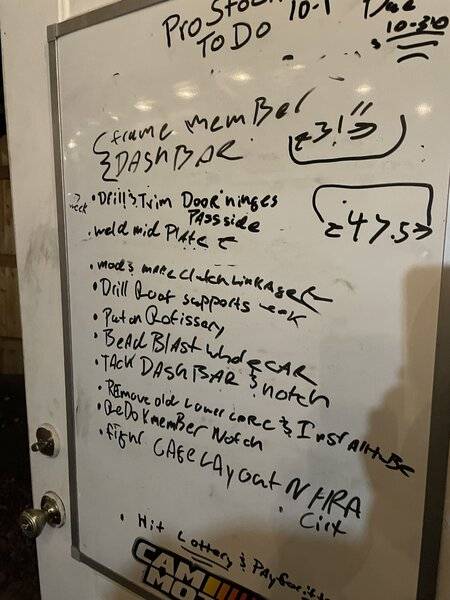 Pro Stock 10-1 Due
To Do 10-30
frame member
DASH BAR
←31"→
←47.5→
• Drill & Trim Door hinges
Pass side
• weld mid Plate
• mods make clutch Linkage
• Drill Roof supports
• Put on Rotissery
• Bead Blast whole CAR
• TACK DASH BAR & notch
• Remove old Lower & Install tube
• ReDo K member Notch
• CAGE LAyout NHRA
Cert
• Hit Lottery & Pay for
CAM
MOT